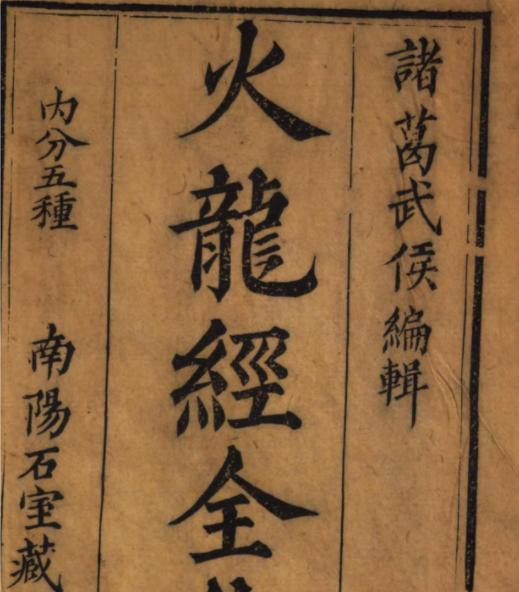 諸葛武侯編輯
火龍經全
内分五種
南陽石室藏